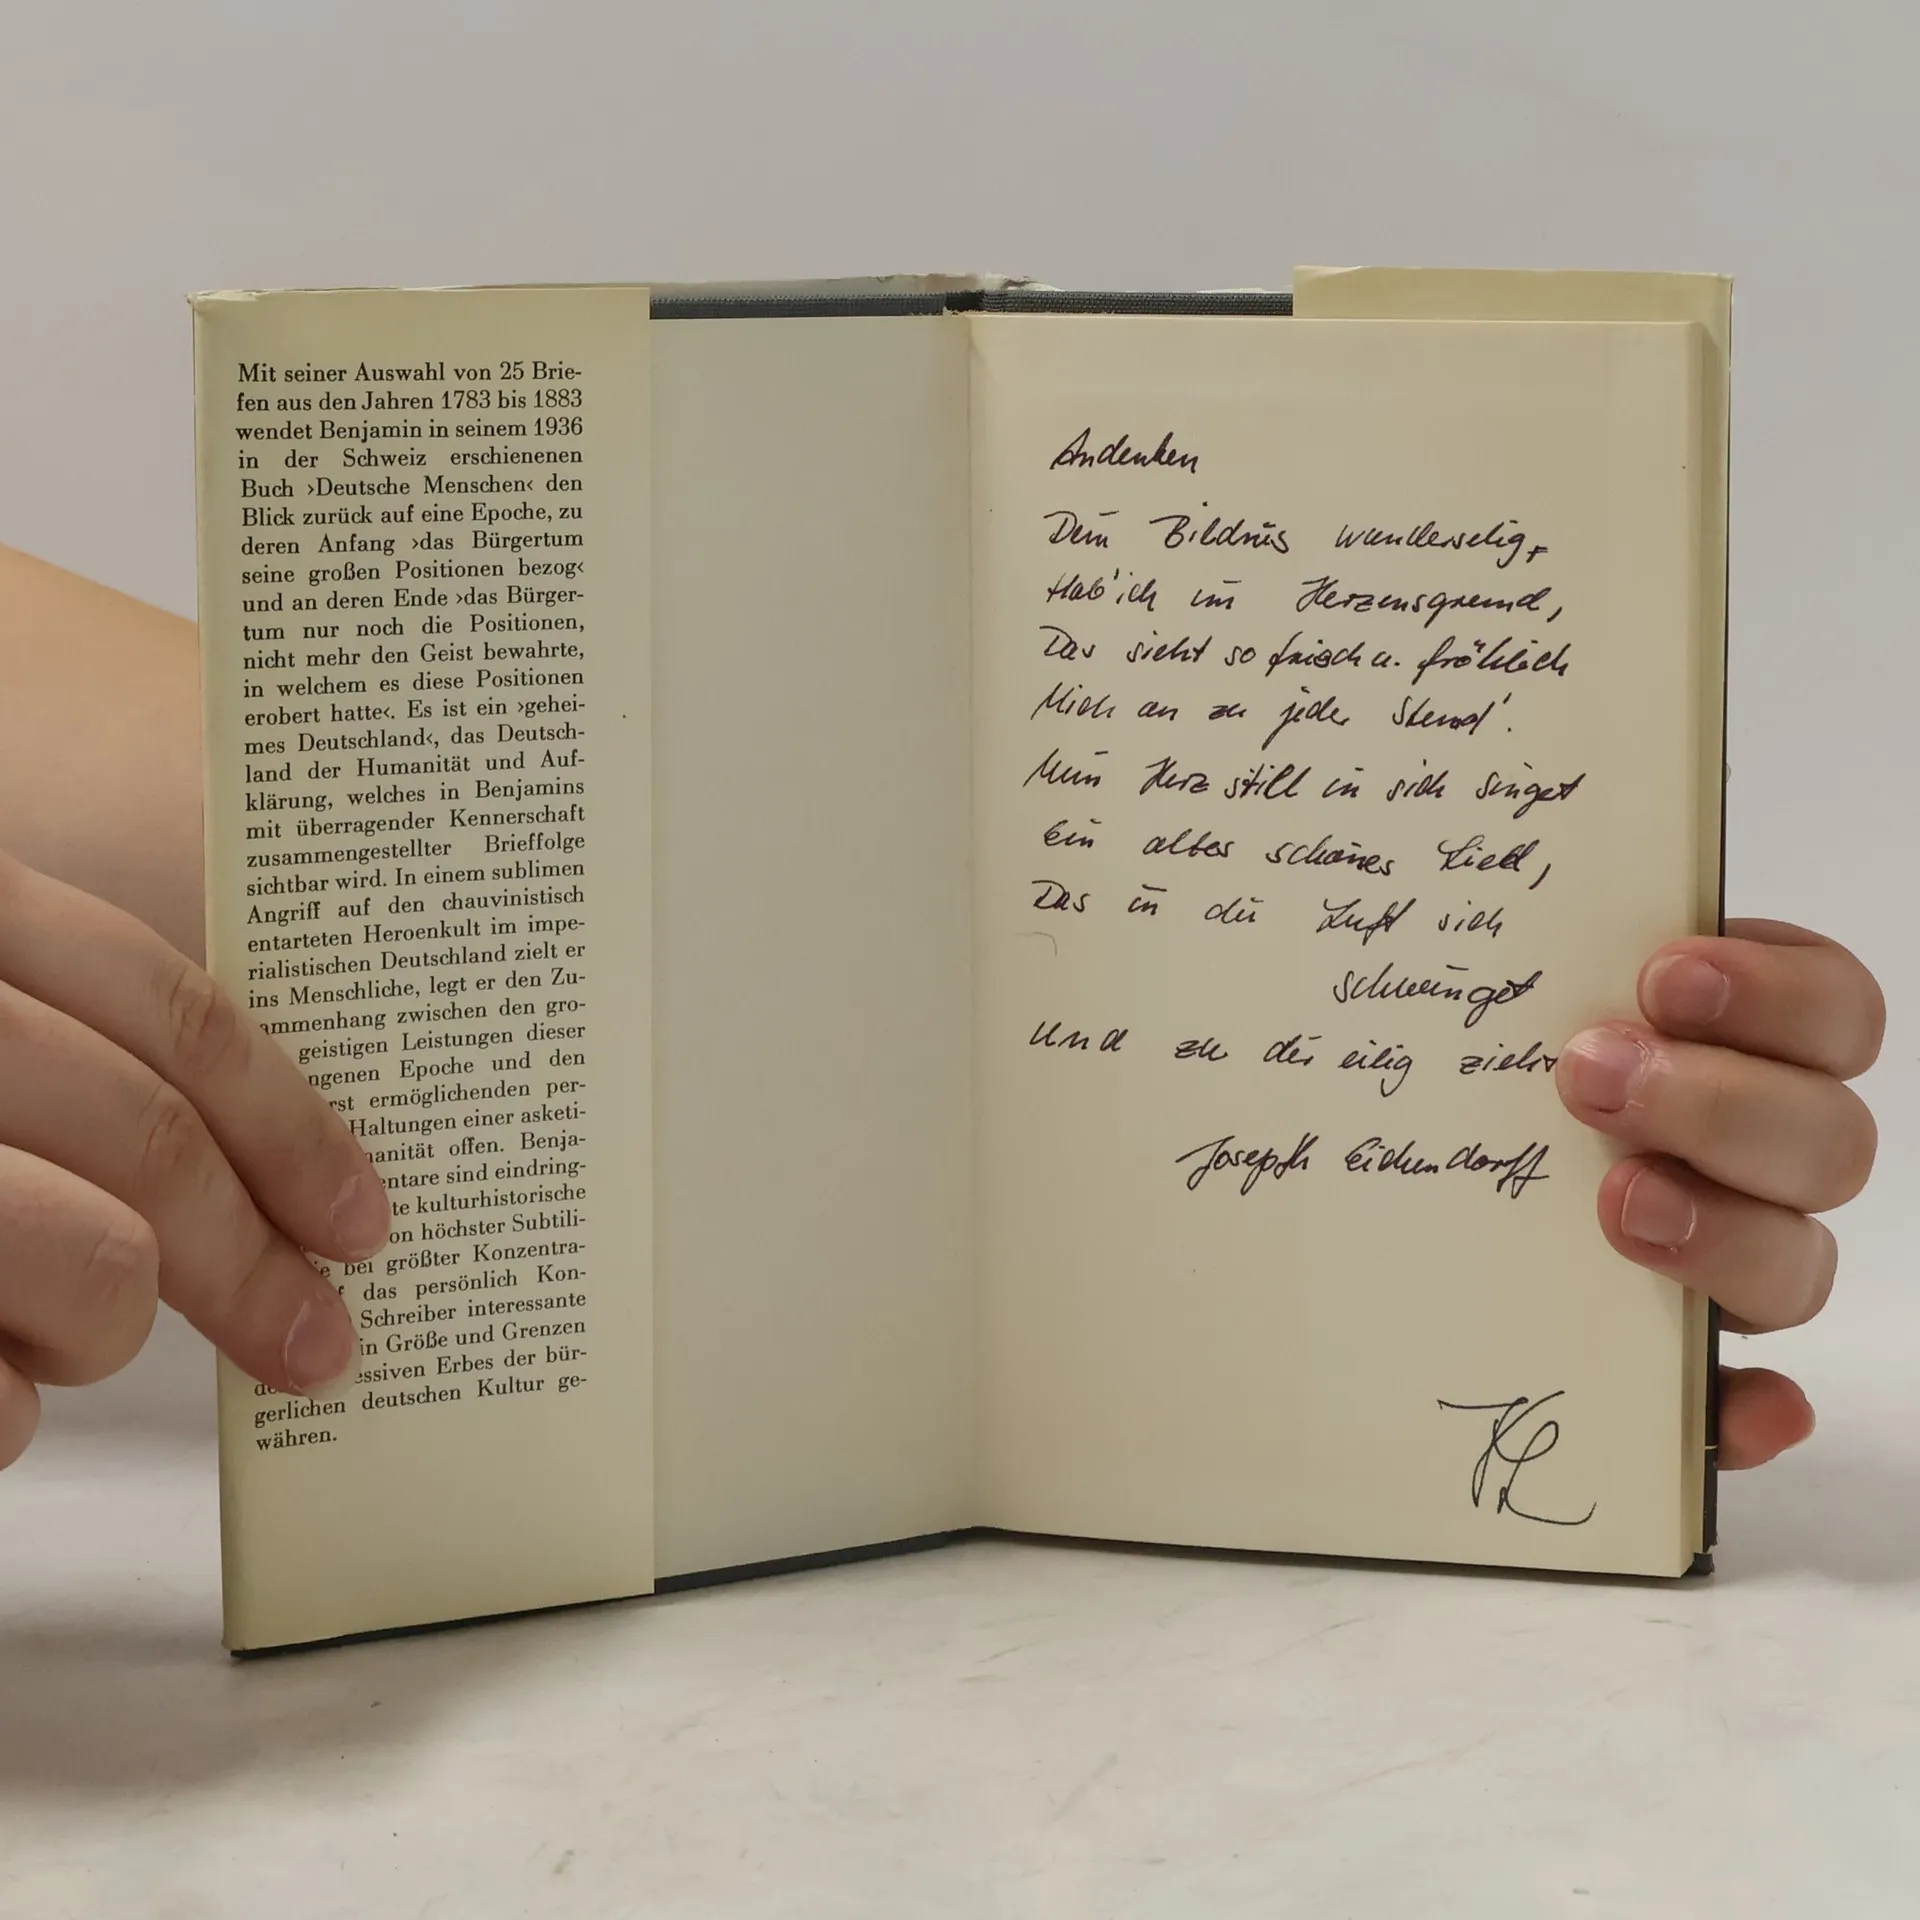 Mit seiner Auswahl von 25 Brie-
fen aus den Jahren 1783 bis 1883
wendet Benjamin in seinem 1936
in der Schweiz erschienenen
Buch ›Deutsche Menschen‹ den
Blick zurück auf eine Epoche, zu
deren Anfang ›das Bürgertum
seine großen Positionen bezog‹
und an deren Ende ›das Bürger-
tum nur noch die Positionen,
nicht mehr den Geist bewahrte,
in welchem es diese Positionen
erobert hatte‹. Es ist ein ›gehei-
mes Deutschland‹, das Deutsch-
land der Humanität und Auf-
klärung, welches in Benjamins
mit überragender Kennerschaft
zusammengestellter Brieffolge
sichtbar wird. In einem sublimen
Angriff auf den chauvinistisch
entarteten Heroenkult im impe-
rialistischen Deutschland zielt er
ins Menschliche, legt er den Zu-
ammenhang zwischen den gro-
geistigen Leistungen dieser
ngenen Epoche und den
rst ermöglichenden per-
Haltungen einer asketi-
anität offen. Benja-
entare sind eindring-
te kulturhistorische
on höchster Subtili-
e bei größter Konzentra-
f das persönlich Kon-
Schreiber interessante
in Größe und Grenzen
de essiven Erbes der bür-
gerlichen deutschen Kultur ge-
währen.
Andenken
Dein Bildnis wunderselig,
Hab' ich im Herzensgrund,
Das sieht so frisch u. fröhlich
Mich an zu jeder Stund'.
Mein Herz still in sich singet
Ein altes schönes Lied,
Das in die Luft sich
schwinget
Und zu dir eilig zieht
Joseph Eichendorff